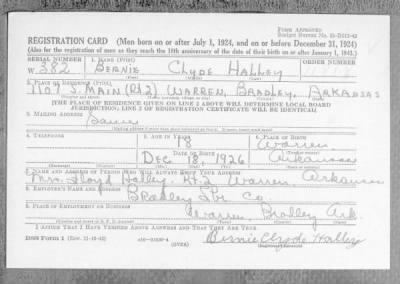 FORM APPROVED
REGISTRATION CARD (Men born on or after July 1, 1924, and on or before December 31, 1924)
(Also for the registration of men as they reach the 18th anniversary of the date of their birth on or after January 1, 1943.)
SERIAL NUMBER 1. NAME (Print) ORDER NUMBER
W 382 BERNIE CLYDE HALLEY
2. PLACE OF RESIDENCE (Print)
1107 S. MAIN (Rt 2) WARREN, BRADLEY, ARKANSAS
[THE PLACE OF RESIDENCE GIVEN ON LINE 2 ABOVE WILL DETERMINE LOCAL BOARD
JURISDICTION; LINE 2 OF REGISTRATION CERTIFICATE WILL BE IDENTICAL]
3. MAILING ADDRESS
Same
4. TELEPHONE 5. AGE IN YEARS 6. PLACE OF BIRTH
18 Warren
DATE OF BIRTH
Dec 18, 1926 Arkansas
7. NAME AND ADDRESS OF PERSON WHO WILL ALWAYS KNOW YOUR ADDRESS
Mrs. Floyd Halley, Rt-2 Warren, Arkansas
8. EMPLOYER'S NAME AND ADDRESS
Bradley Lbr. Co.
9. PLACE OF EMPLOYMENT OR BUSINESS
Warren, Bradley Ark
I AFFIRM THAT I HAVE VERIFIED ABOVE ANSWERS AND THAT THEY ARE TRUE.
DSS Form 1 (OVER) Bernie Clyde Halley